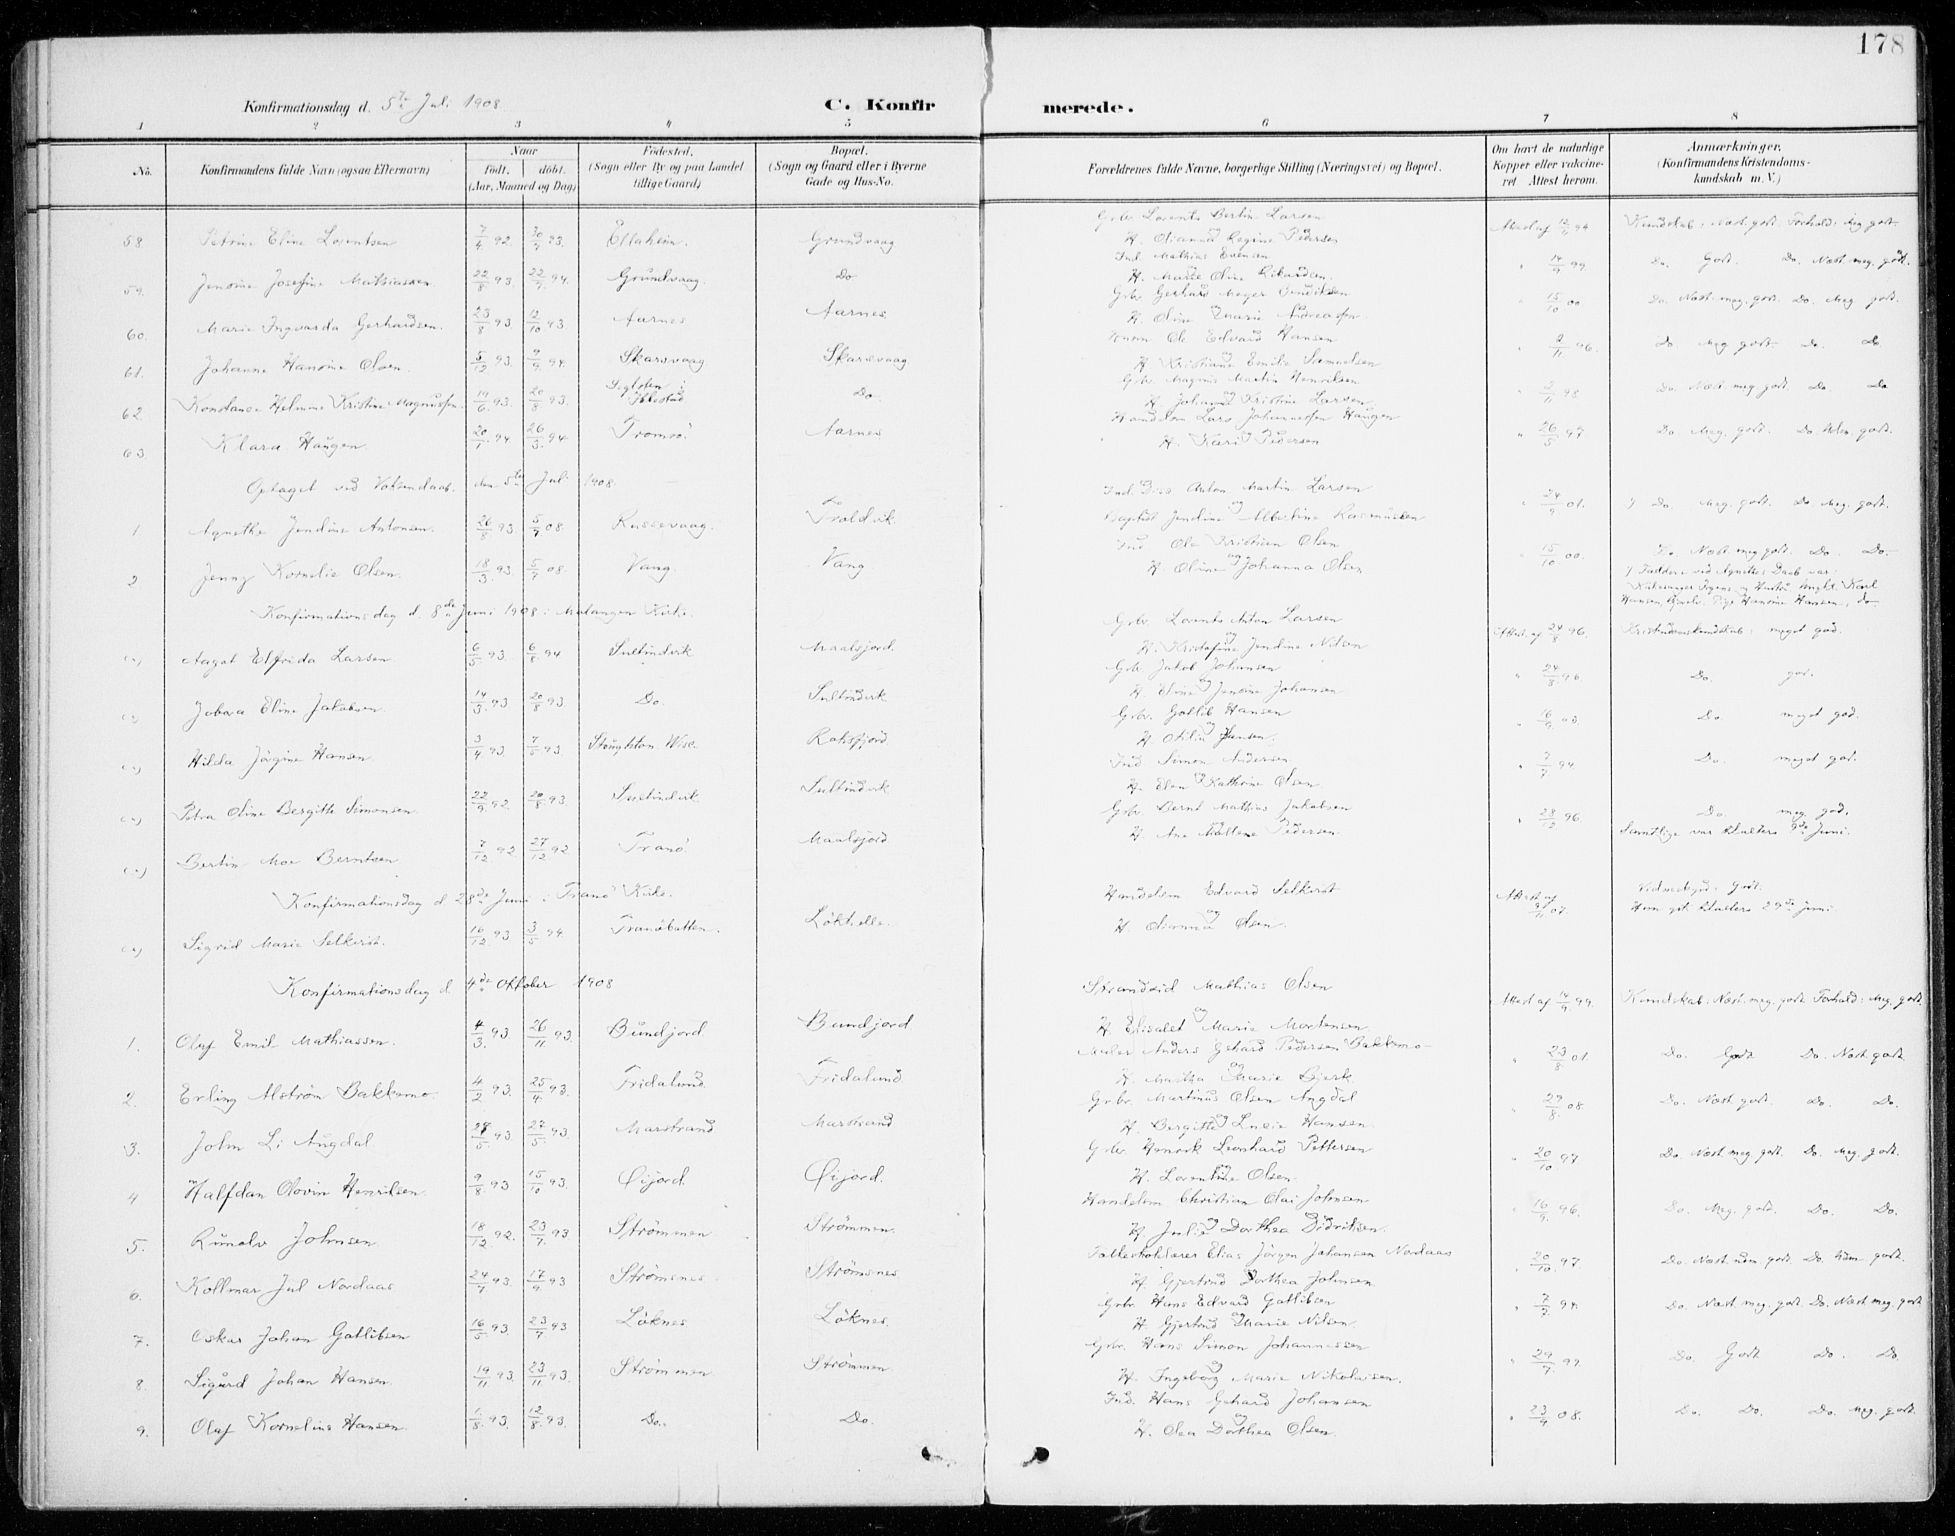 178
Konfirmationsdag d. 5te Juli 1908.
C. Konfirmerede.
1 2 3 4 5 6 7 8
No. Konfirmandens fulde Navn (ogsaa Efternavn) Naar født. døbt. (Aar, Maaned og Dag) Fødested. (Sogn eller By og paa Landet tillige Gaard) Bopæl. (Sogn og Gaard eller i Byerne Gade og Hus-No. Forældrenes fulde Navne, borgerlige Stilling (Næringsvei) og Bopæl. Om havt de naturlige Kopper eller vakcineret Attest herom. Anmærkninger. (Konfirmandens Kristendomskundskab m. V.)
58 Petrine Eline Lorentsen 7/4 92. Grundvaag Grbr. Lorents Bertin Larsen
H. Regine Pedersen
59. Jensine Josefine Mathiassen 22/8 93. 22/7 94. Grundvaag. Do Ind. Mathias
" 14/9 99. Do. Godt. Do. Næst. meg. godt.
60. Marie Ingvarda Gerhardsen. 23/8 93. 12/10 93 Aarnes Aarnes Grbr. Gerhard Meyer
og H. Oline Marie Andreasen " 15/10 00 Do. Næst meg. godt. Do. Meg godt.
61. Johanne Hansine Olsen. 5/12 93. 9/9 94. Skarsvaag Skarsvaag Ole Edvard Hansen
og H. Kristiane Emilie Samuelsen Do Meg godt Do. Do
62. Konstance Helmine Kristine Magnussen. 19/6 93. 20/8 93. Ibbestad Do. Grbr. Magnus Martin Henriksen
og H. Johanna Kristine Larsen Do. Næst meg godt Do. Do
63 Klara Haugen. 20/1 94 26/3 94 Tromsö. Aarnes Handelsm Lars Johannessen Haugen
og H. Kari Pedersen " 26/5 97 Do Meg. godt. Do. godt.
Optaget ved Voksendaab. den 5te Juli 1908.
1 Agnethe Jendine Antonsen. 26/8 93. 5/7 08. Russevaag. Troldvik. Ind. Diss. Anton Martin Larsen
og Baptist Jendine Albertine Rasmussen " 24/9 01. Do. Meg. godt. Do. Meg. godt.
2 Jenny Kornelie Olsen. 18/3 93. 5/7 08. Vang. Vang Ind Ole Kristian Olsen
og H. Oline Johanna Olsen " 15/10 00. Do. Næst. meg godt. Do. Do.
Faddere ved Agnethes Daab var:
Karl
Hansen, Pige Hansine Hansen, do
Konfirmationsdag d. 8de Juni 1908 i Malangen Kirke.
Aagot Elfrida Larsen 6/5 93. 6/8 94 Sultindvik Maalsjord. Grbr. Lorents Anton Larsen
og H. Kristofine Jendine Nilsen Attest af 24/8 96. Kristendomskundskab: meget god.
Eline Jakobsen 14/3 93 20/8 93. Do. Sultindvik Grbr. Jakob Johansen
og H. Eline Jensine Johansen " 24/8 96. Do. god.
Hilda Jörgine Hansen 3/4 93 7/5 93. Stoughton Wisc. Rossfjord Grbr. Gotlib Hansen
og H. Otilia Jensen. Do. meget god.
Petra Oline Bergitte Simonsen 22/9 92. 20/8 93. Sultindvik Sultindvik Ind Simon Andersen
og H. Elen Kathrine Olsen " 7/7 94 Do. meget god.
Bertin Moe Berntsen 7/12 92 27/12 92 Tranö. Maalsjord Grbr. Bernt Mathias Jakobsen
H. Ane Maltene Pedersen. " 28/12 96 Do. meg god.
Samtlige var til alters 9de Juni.
Konfirmationsdag d. 28de Juni i Tranö Kirke.
Sigrid Marie Selkvist. 16/12 93 3/5 94 Tranöbotten. Lökhelle. Handelsm Edvard Selkvist
og H. Olsen. Attest af 07. godt.
Hun gik til alters 29de Juni.
Konfirmationsdag d. 4de Oktober 1908
1. Olaf Emil Mathiassen. 4/3 93. 26/11 93. Bundjord Bundjord Strandsid Mathias Olsen
og H. Elisabet Marie Mortensen Attest af 14/9 99. Kundskab: Næst. meg. godt. Forhold: Meg. godt.
2. Erling Alström Bakkemo. 4/2 93. 25/4 93. Fridalund Fridalund Maler Anders Gehard Pedersen Bakkemo
og H. Martha Marie Bjerk " 23/8 01. Do. Godt Do. Næst godt
3. John Li Augdal 27/5 93. Marstrand Marstrand Grbr. Martinus Olsen Angdal
og H. Bergitte Lucie Hansen " 29/8 08. Do. Næst godt. Do. Do.
4 Halfdan Olovin Henriksen. 9/8 93 15/10 93. Øijord. Øijord. Grbr. Henrik Leonhard Pettersen
og H. Lorentine Olsen. " 20/10 97 Do. Næst meg. godt. Do. Meg. godt.
5. Runolv Johnsen 18/12 92. 23/7 93 Strömmen Strömmen. Handelsm Christian Olai Johnsen
og H. Julie Dorthea Didriksen. " 16/9 96. Do. Meg. godt. Do. Do.
6. Kollmar Jul Nordaas 24/7 93. 17/9 93 Strömsnes. Strömsnes Elias Jörgen Johansen Nordaas
og H. Gjertrud Dorthea Johnsen. " 20/10 97. Do. Næst udm. godt. Do. Udm. godt.
7. Oskar Johan Gotlibsen 16/5 93. 23/7 93 Löknes Löknes. Grbr. Hans Edvard Gotlibsen
og H. Gjertrud Marie Nilsen. " 7/7 94. Do. Næst. meg. godt. Do. Næst. meg. godt.
8. Sigurd Johan Hansen. 19/11 93. 23/11 93. Strömmen Strömmen. Grbr. Hans Simon Johannessen
og H. Ingeborg Marie Nikolaisen. " 29/7 97. Do. Godt Do. Do.
9. Olaf Kornelius Hansen. 1/8 93. 12/8 93. Do. Do. Ind. Hans Gehard Johansen
og H. Olea Dorthea Olsen. " 23/9 08. Do. Do. Do. Meg. godt.